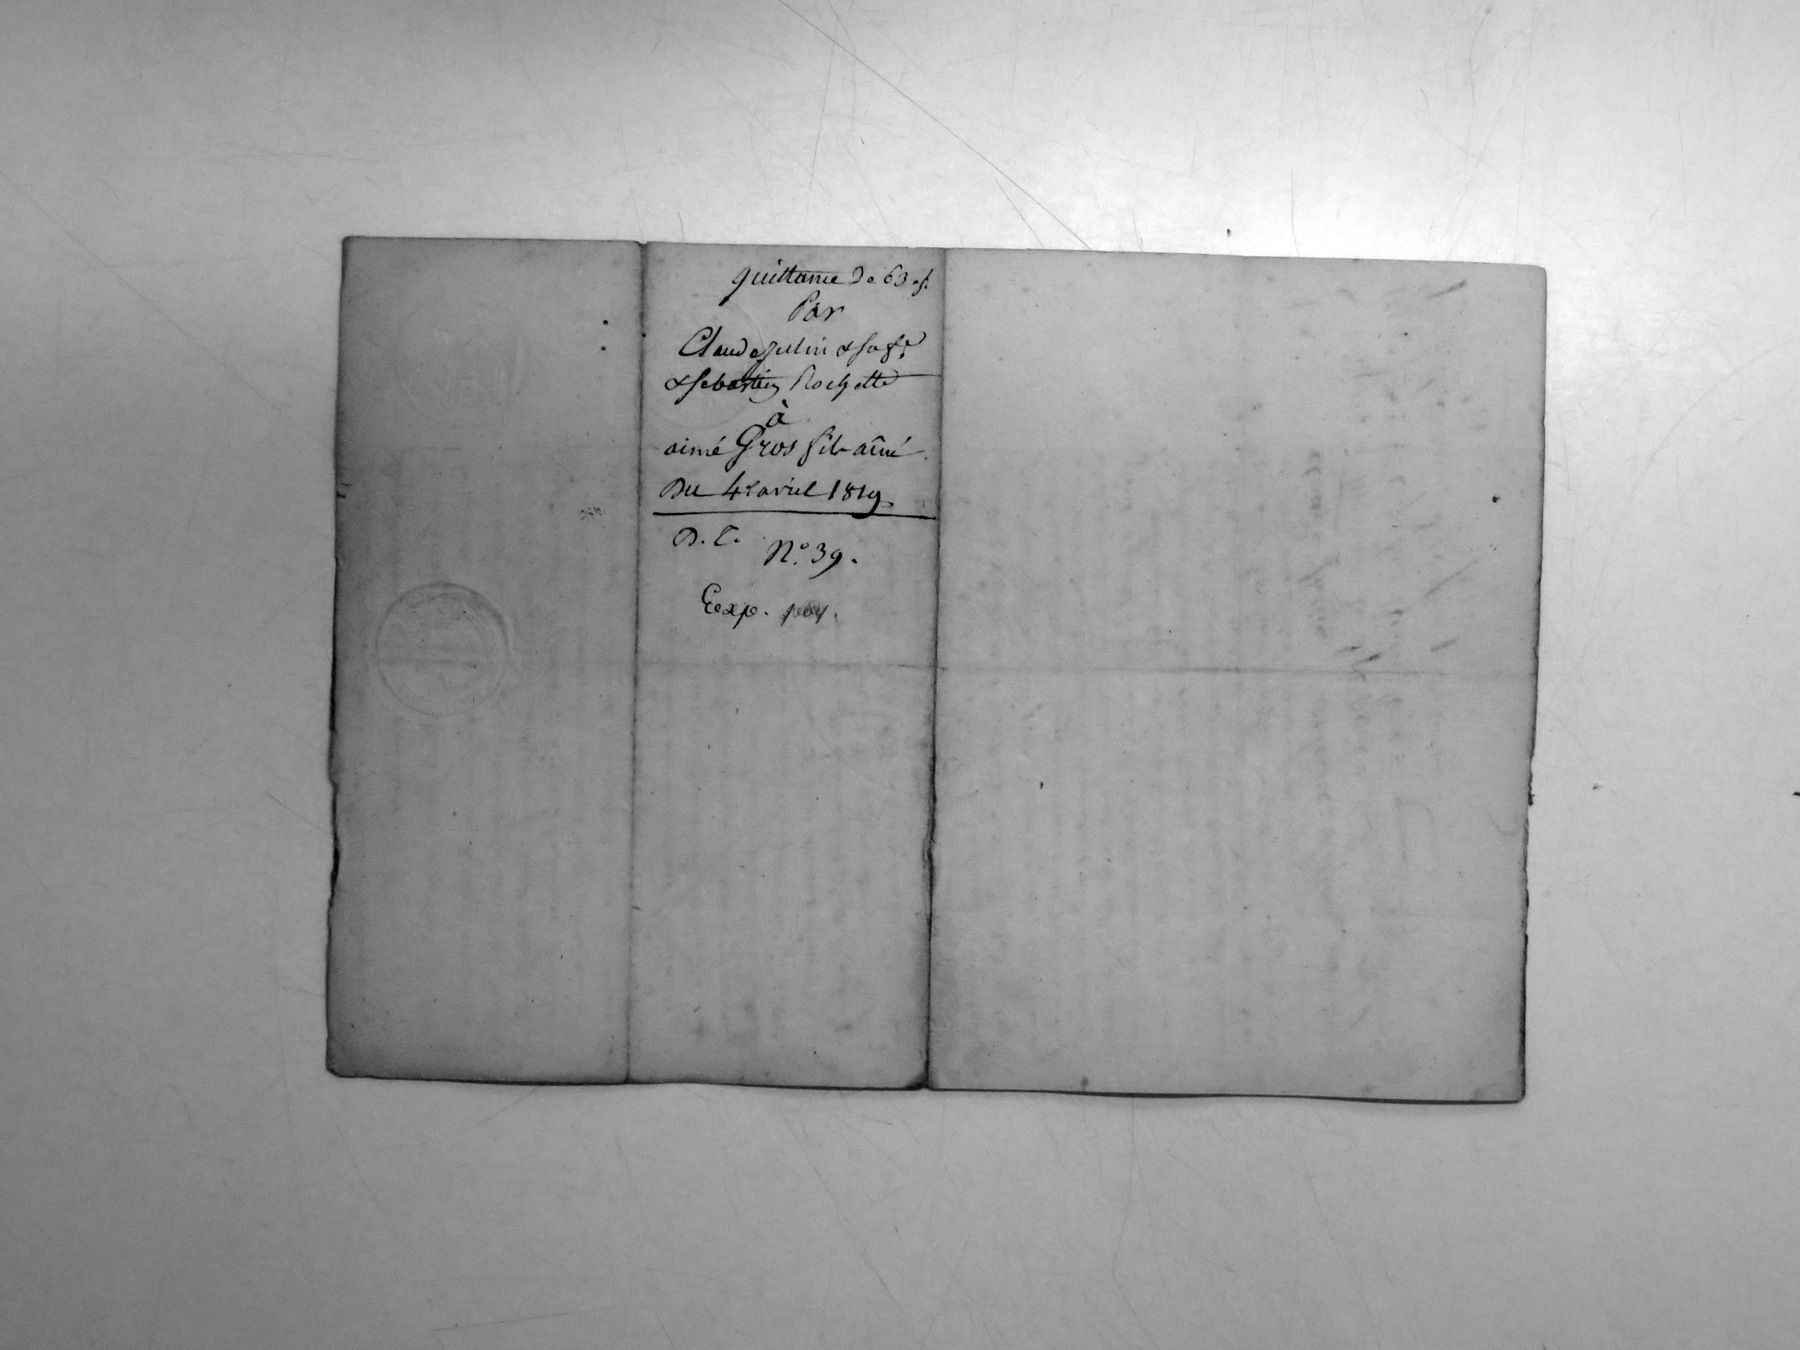 quittance De 63 f.
Par
Claude Jullin & sa fe
& sebastien Rochette
à
aimé Gros fils aîné.
Du 4e avril 1819.
D. T.
N.° 39.
Exp. pay.